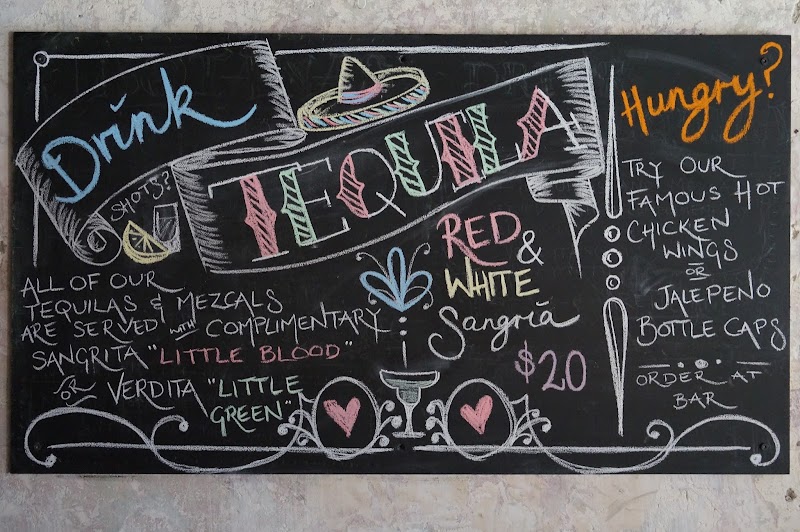 Drink
TEQUILA
SHOTS?
ALL OF OUR
TEQUILAS & MEZCALS
ARE SERVED with COMPLIMENTARY
SANGRITA "LITTLE BLOOD"
OR VERDITA "LITTLE
GREEN"
RED &
WHITE
Sangria
$20
Hungry?
TRY OUR
FAMOUS HOT
CHICKEN
WINGS
OR
JALEPENO
BOTTLE CAPS
ORDER AT
BAR